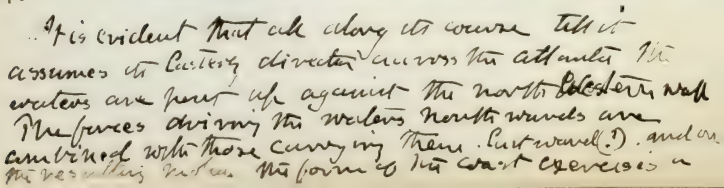 It is evident that all along its course till it
assumes its Easterly direction across the Atlantic the
waters are pent up against the north Western wall
The forces driving the waters northwards are
combined with those carrying them Eastward (?). and on
the resulting motion the form of the coast exercises a